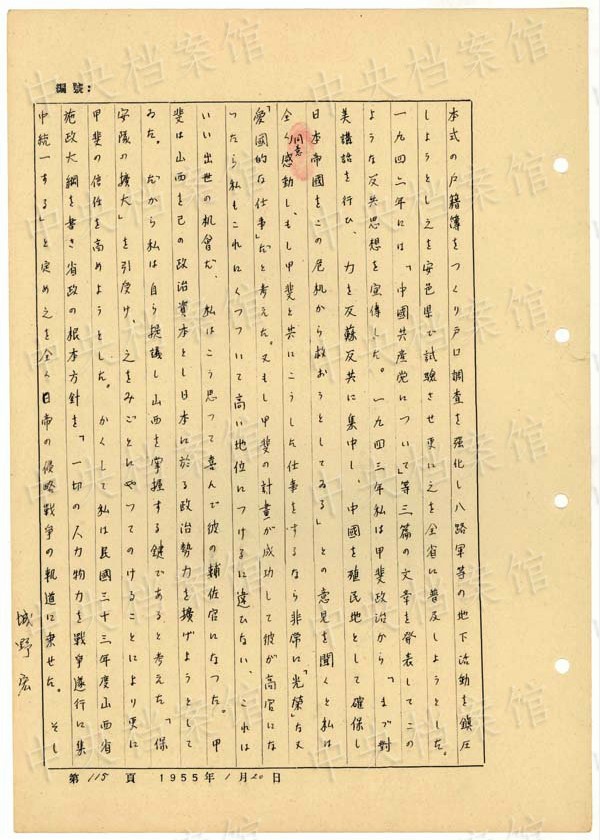 編號:
本式の戸籍簿をつくり戸口調査を強化し八路軍等の地下活動を鎮圧
しようとし之を安邑県で試験させ更に之を全省に普及しようとした。
一九四二年には「中國共産党について」等三篇の文章を発表してこの
ような反共思想を宣傳した。一九四三年私は甲斐政治から「まづ対
美講話を行ひ、力を反蘇反共に集中し、中國を殖民地として確保し
日本帝國をこの危机から救おうとしてゐる」との意見を聞くと私は
全く同意感動し、もし甲斐と共にこうした仕事をするなら非常に「光榮」な又
愛國的な仕事」だと考えた。又もし甲斐の計畫が成功して彼が高官にな
つたら私もこれにくつついて高い地位につけるに違ひない、これは
いい出世の机會だ、私はこう思つて喜んで彼の輔佐官になつた。甲
斐は山西を己の政治資本とし日本に於る政治勢力を擴げようとして
ゐた。だから私は自ら提議し山西を掌握する鍵であると考えた「保
安隊の擴大」を引受け、之をみごとにやつてのけることにより更に
甲斐の信任を高めようとした。かくして私は民國三十三年度山西省
施政大綱を書き省政の根本方針を「一切の人力物力を戰爭遂行に集
中統一する」と定め之を全く日帝の侵略戰爭の軌道に乗せた。そし
城野宏
第 115 頁 1955年 1月20日
中央档案馆